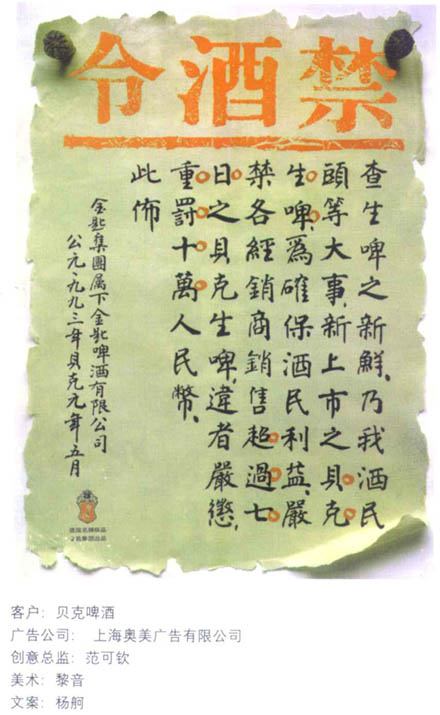 禁酒令
查生啤之新鮮、乃我酒民
頭等大事、新上市之貝克
生啤、爲確保酒民利益、嚴
禁各經銷商銷售超過七
日之貝克生啤、違者嚴懲、
重罰十萬人民幣、
此佈
金匙集團属下金匙啤酒有限公司
公元一九九三年貝克元年五月
客户: 贝克啤酒
广告公司: 上海奥美广告有限公司
创意总监: 范可钦
美术: 黎音
文案: 杨舸